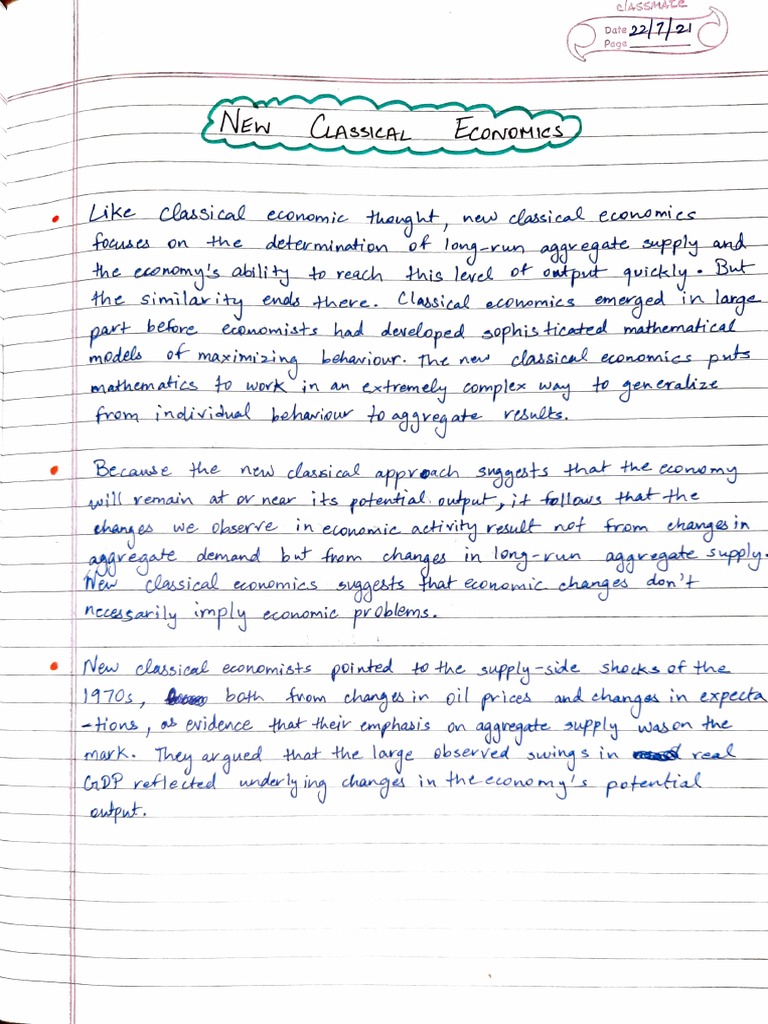 classmate
Date 22/7/21
Page
NEW CLASSICAL ECONOMICS
Like classical economic thought, new classical economics
focuses on the determination of long-run aggregate supply and
the economy's ability to reach this level of output quickly. But
the similarity ends there. Classical economics emerged in large
part before economists had developed sophisticated mathematical
models of maximizing behaviour. The new classical economics puts
mathematics to work in an extremely complex way to generalize
from individual behaviour to aggregate results.
Because the new classical approach suggests that the economy
will remain at or near its potential output, it follows that the
changes we observe in economic activity result not from changes in
aggregate demand but from changes in long-run aggregate supply.
New classical economics suggests that economic changes don't
necessarily imply economic problems.
New classical economists pointed to the supply-side shocks of the
1970s, both from changes in oil prices and changes in expecta
-tions, as evidence that their emphasis on aggregate supply was on the
mark. They argued that the large observed swings in real
GDP reflected underlying changes in the economy's potential
output.